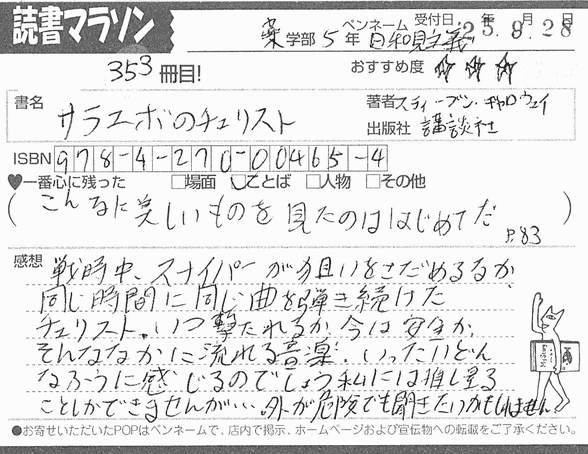 読書マラソン
薬学部5年 ペンネーム 日和見主義 受付日 25.9.28
年 月 日
353冊目!
おすすめ度 ☆☆☆
書名 サラエボのチェリスト
著者 スティーブン・ギャロウェイ
出版社 講談社
ISBN 978-4-270-00465-4
♥一番心に残った □場面 ☑ことば □人物 □その他
(こんなに美しいものを見たのははじめてだ P.83)
感想 戦時中、スナイパーが狙いをさだめるなか
同じ時間に同じ曲を弾き続けた
チェリスト。いつ撃たれるか、今は安全か、
そんななかに流れる音楽。いったいどん
なふうに感じるのでしょう 私には推し量る
ことしかできませんが…外が危険でも聞きたいかもしれません
●お寄せいただいたPOPはペンネームで、店内で掲示、ホームページおよび宣伝物への転載をご了承ください。